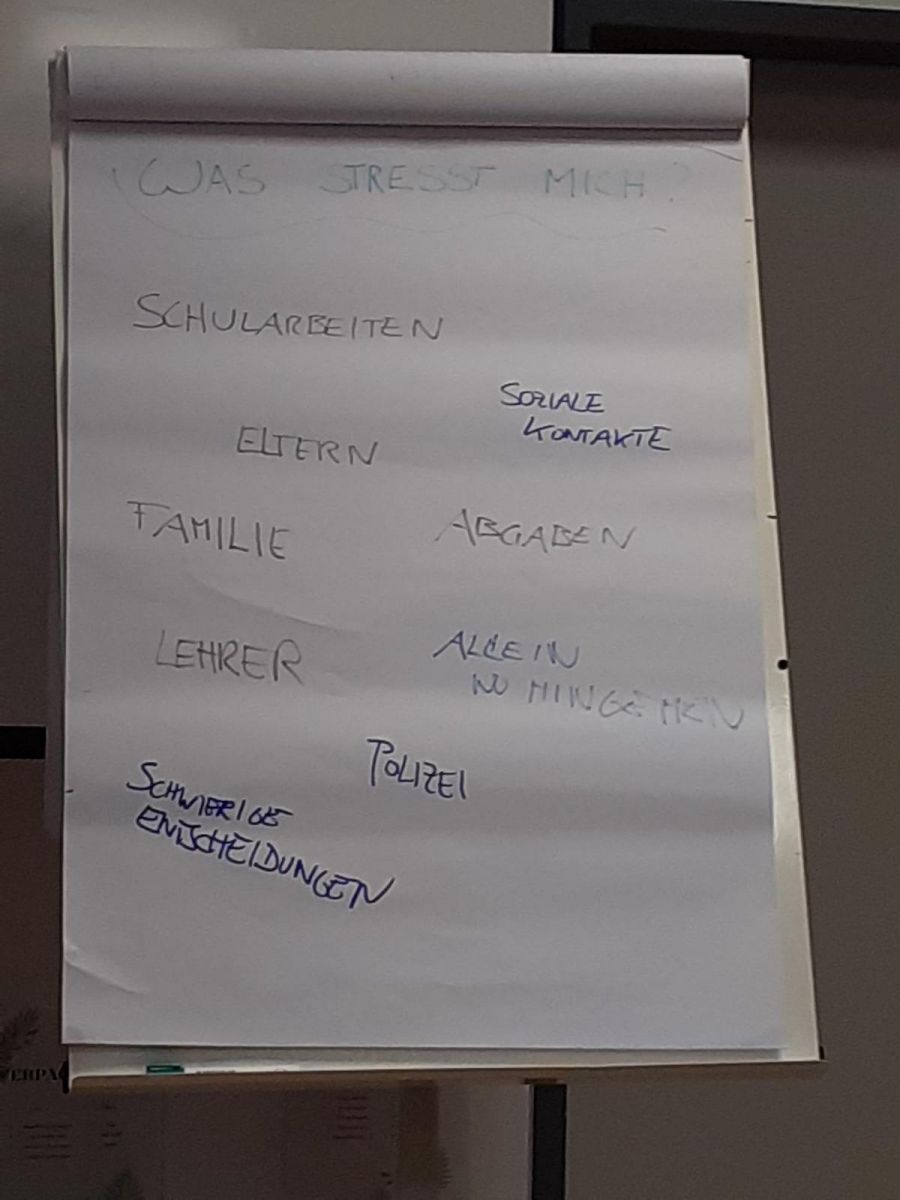 WAS STRESST MICH?
SCHULARBEITEN
SOZIALE
KONTAKTE
ELTERN
FAMILIE
ABGABEN
LEHRER
ALLEIN
WO HINGEHEN
POLIZEI
SCHWIERIGE
ENTSCHEIDUNGEN